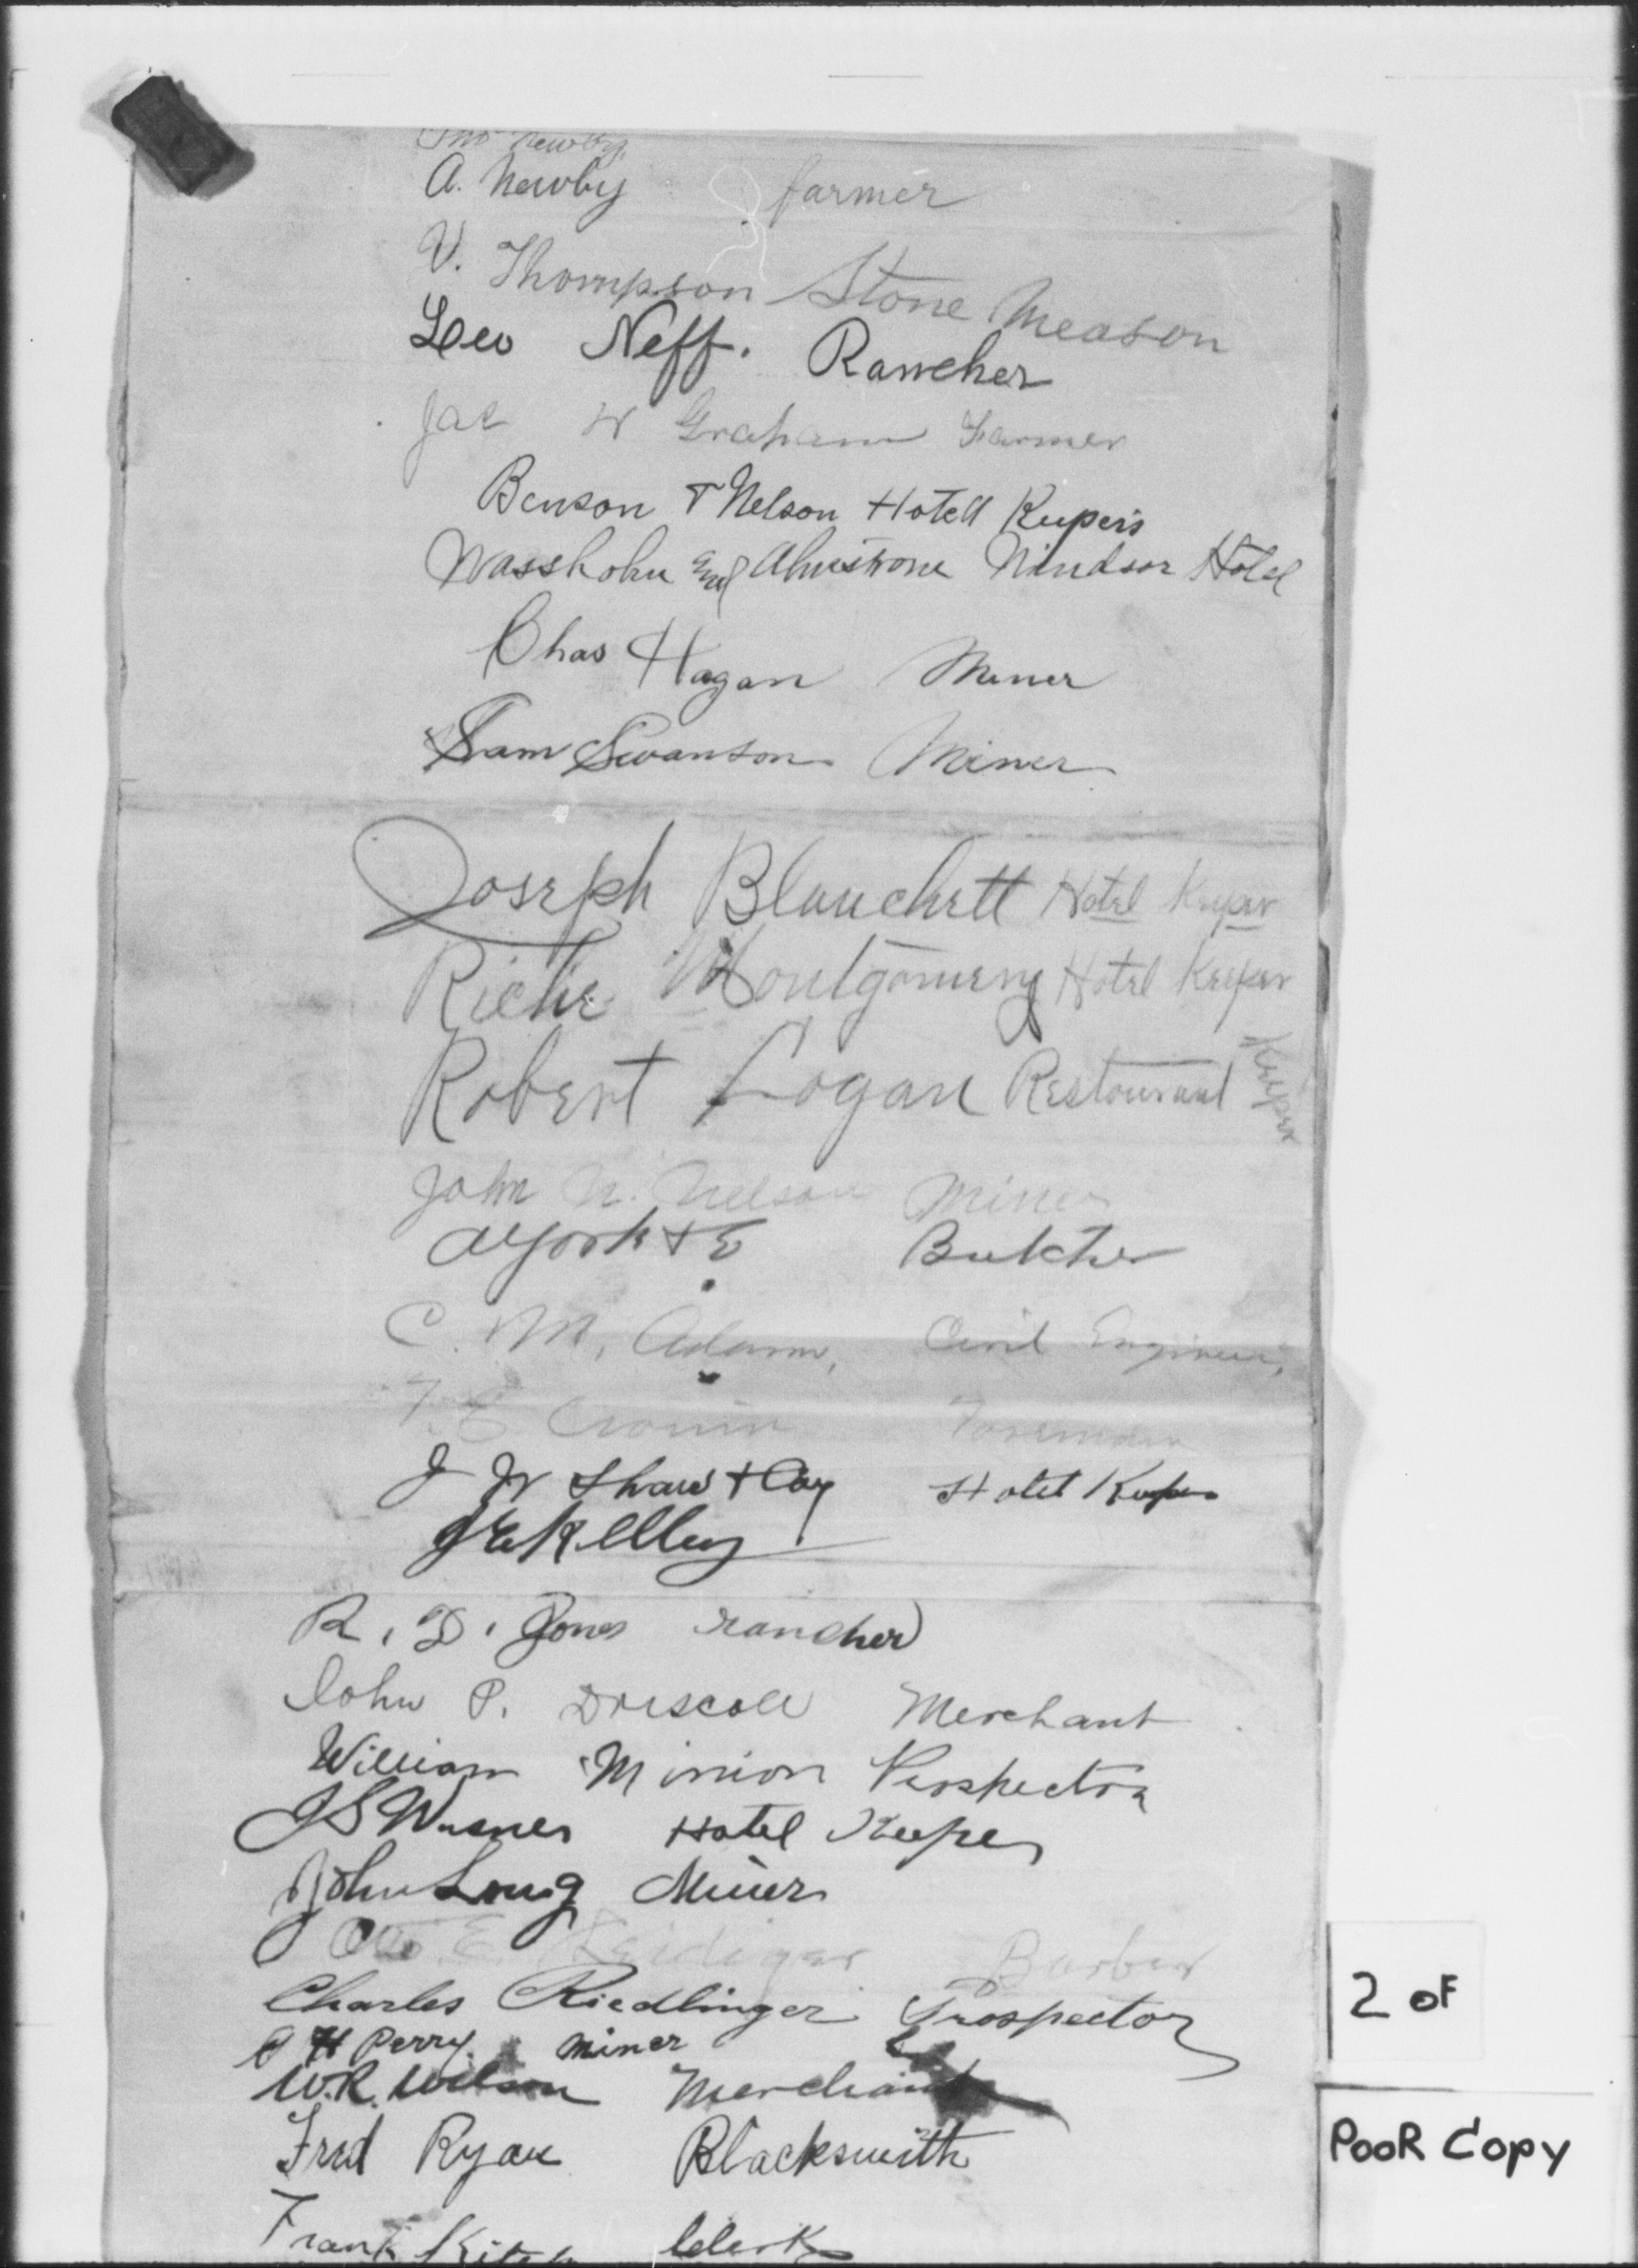 Newby
A. Newby farmer
V. Thompson Stone Meason
Leo Neff. Rancher
Jac W Graham Farmer
Benson & Nelson Hotell Keepers
and Windsor Hotel
Chas Hagan Miner
Sam Swanson Miner
Joseph Blanchett Hotel Keeper
Richie Montgomery Hotel Keeper
Robert Logan Restourant Keeper
John N. Nelson Miner
Butcher
C. M. Adams, Civil Engineer,
T. E Cronin Foreman
J W Shaw & Coy Hotel Keeper
J E Kelley
R. D. Jones rancher
John P. Driscoll Merchant
William Minion Perspector
J S Hotel Keeper
John Long Miner
Otto E. Leidiger Barber
Charles Riedlinger Prospector
H Perry. miner
W. R. Wilson Merchant
Fred Ryan Blacksmith
Frank Clerk
2 OF
POOR COPY